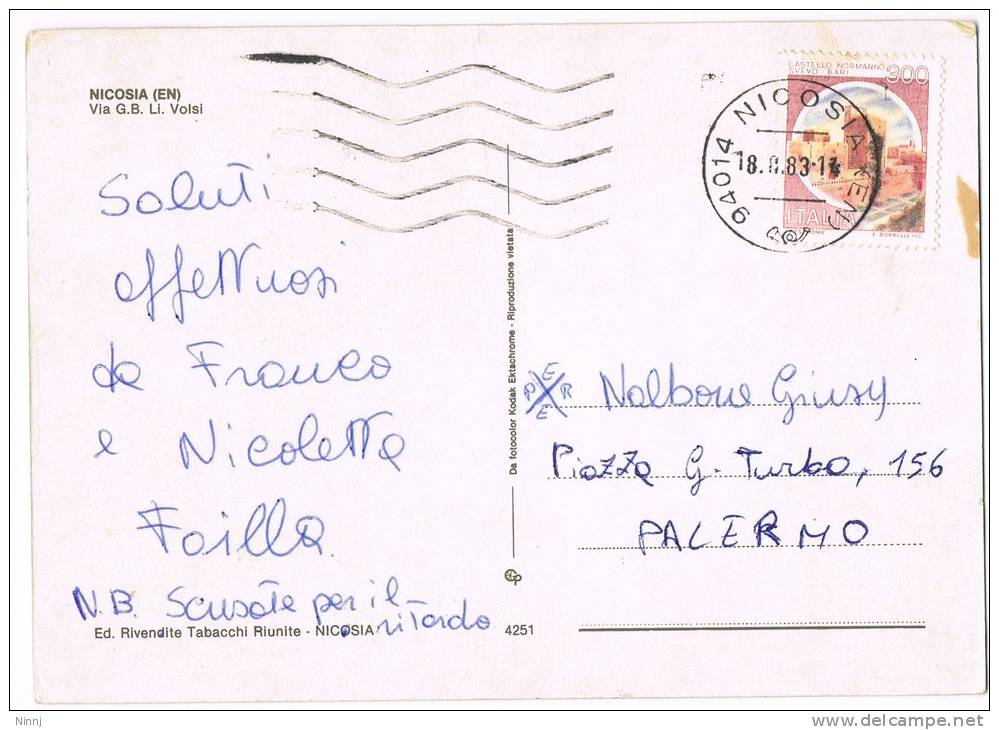 NICOSIA (EN)
Via G.B. Li. Volsi
CASTELLO NORMANNO
SVEVO BARI
300
ITALIA
ROMA
E. DONNINI INC.
94014 NICOSIA (EN)
83·14
Saluti
affettuosi
da Franco
e Nicoletta
Foilla
N.B. Scusate per il
ritardo
Ed. Rivendite Tabacchi Riunite - NICOSIA
4251
Da fotocolor Kodak Ektachrome - Riproduzione vietata
Nalbone Giusy
Piazza G. Turbo, 156
PALERMO
Ninnj
www.delcampe.net